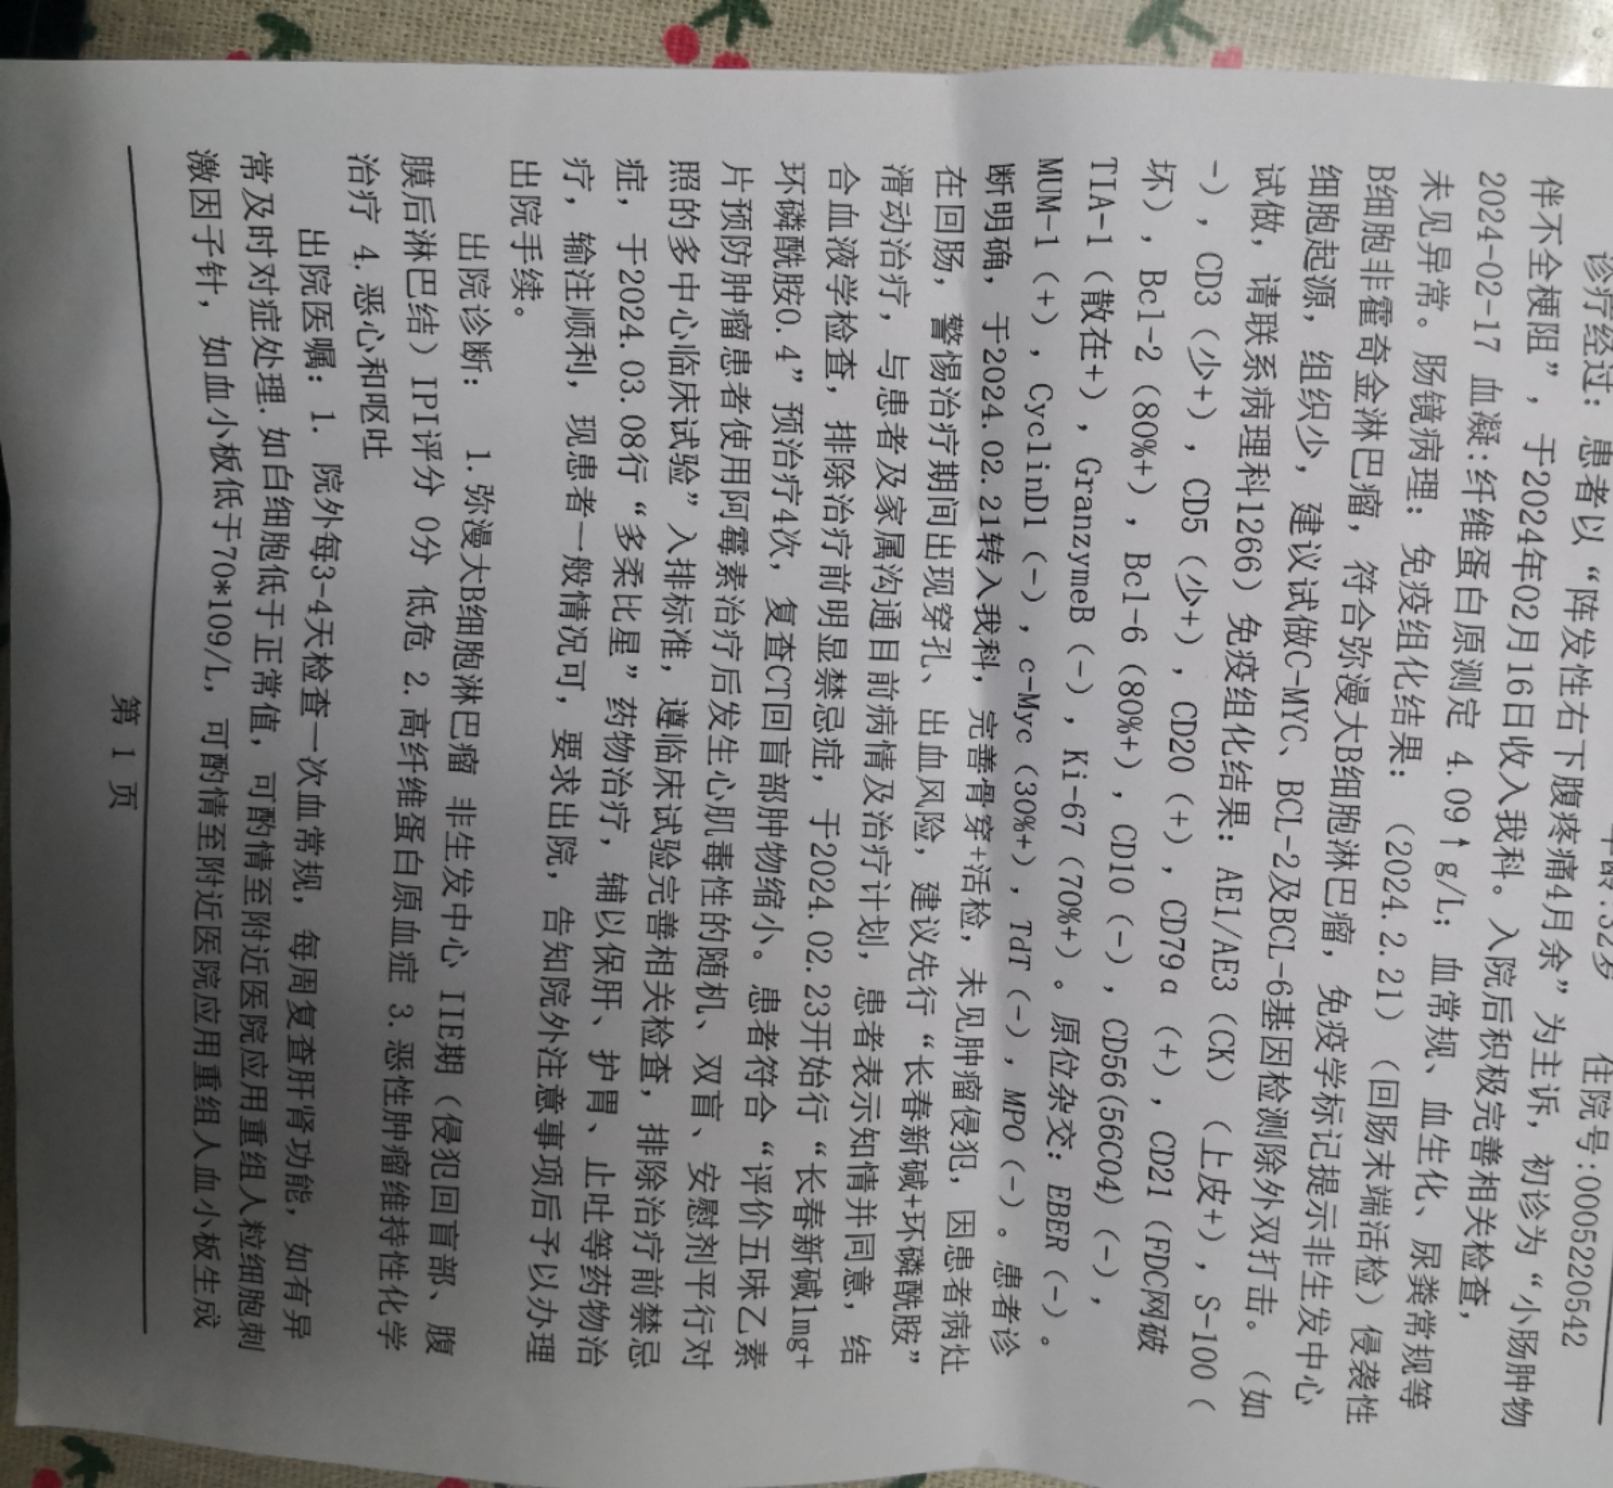 年龄:32岁 住院号:0005220542
诊疗经过: 患者以“阵发性右下腹疼痛4月余”为主诉, 初诊为“小肠肿物
伴不全梗阻”, 于2024年02月16日收入我科。入院后积极完善相关检查,
2024-02-17 血凝:纤维蛋白原测定 4.09↑g/L; 血常规、血生化、尿粪常规等
未见异常。肠镜病理: 免疫组化结果: (2024.2.21) (回肠末端活检) 侵袭性
B细胞非霍奇金淋巴瘤, 符合弥漫大B细胞淋巴瘤, 免疫学标记提示非生发中心
细胞起源, 组织少, 建议试做C-MYC、BCL-2及BCL-6基因检测除外双打击。(如
试做, 请联系病理科1266) 免疫组化结果: AE1/AE3 (CK) (上皮+), S-100 (
-), CD3 (少+), CD5 (少+), CD20 (+), CD79α (+), CD21 (FDC网破
坏), Bcl-2 (80%+), Bcl-6 (80%+), CD10 (-), CD56(56C04) (-),
TIA-1 (散在+), GranzymeB (-), Ki-67 (70%+)。原位杂交: EBER (-)。
MUM-1 (+), CyclinD1 (-), c-Myc (30%+), TdT (-), MPO (-)。患者诊
断明确, 于2024.02.21转入我科, 完善骨穿+活检, 未见肿瘤侵犯, 因患者病灶
在回肠, 警惕治疗期间出现穿孔、出血风险, 建议先行“长春新碱+环磷酰胺”
滑动治疗, 与患者及家属沟通目前病情及治疗计划, 患者表示知情并同意, 结
合血液学检查, 排除治疗前明显禁忌症, 于2024.02.23开始行“长春新碱1mg+
环磷酰胺0.4”预治疗4次, 复查CT回盲部肿物缩小。患者符合“评价五味乙素
片预防肿瘤患者使用阿霉素治疗后发生心肌毒性的随机、双盲、安慰剂平行对
照的多中心临床试验”入排标准, 遵临床试验完善相关检查, 排除治疗前禁忌
症, 于2024.03.08行“多柔比星”药物治疗, 辅以保肝、护胃、止吐等药物治
疗, 输注顺利, 现患者一般情况可, 要求出院, 告知院外注意事项后予以办理
出院手续。
出院诊断: 1.弥漫大B细胞淋巴瘤 非生发中心 IIE期 (侵犯回盲部、腹
膜后淋巴结) IPI评分 0分 低危 2.高纤维蛋白原血症 3.恶性肿瘤维持性化学
治疗 4.恶心和呕吐
出院医嘱: 1. 院外每3-4天检查一次血常规, 每周复查肝肾功能, 如有异
常及时对症处理.如白细胞低于正常值, 可酌情至附近医院应用重组人粒细胞刺
激因子针, 如血小板低于70*109/L, 可酌情至附近医院应用重组人血小板生成
第 1 页